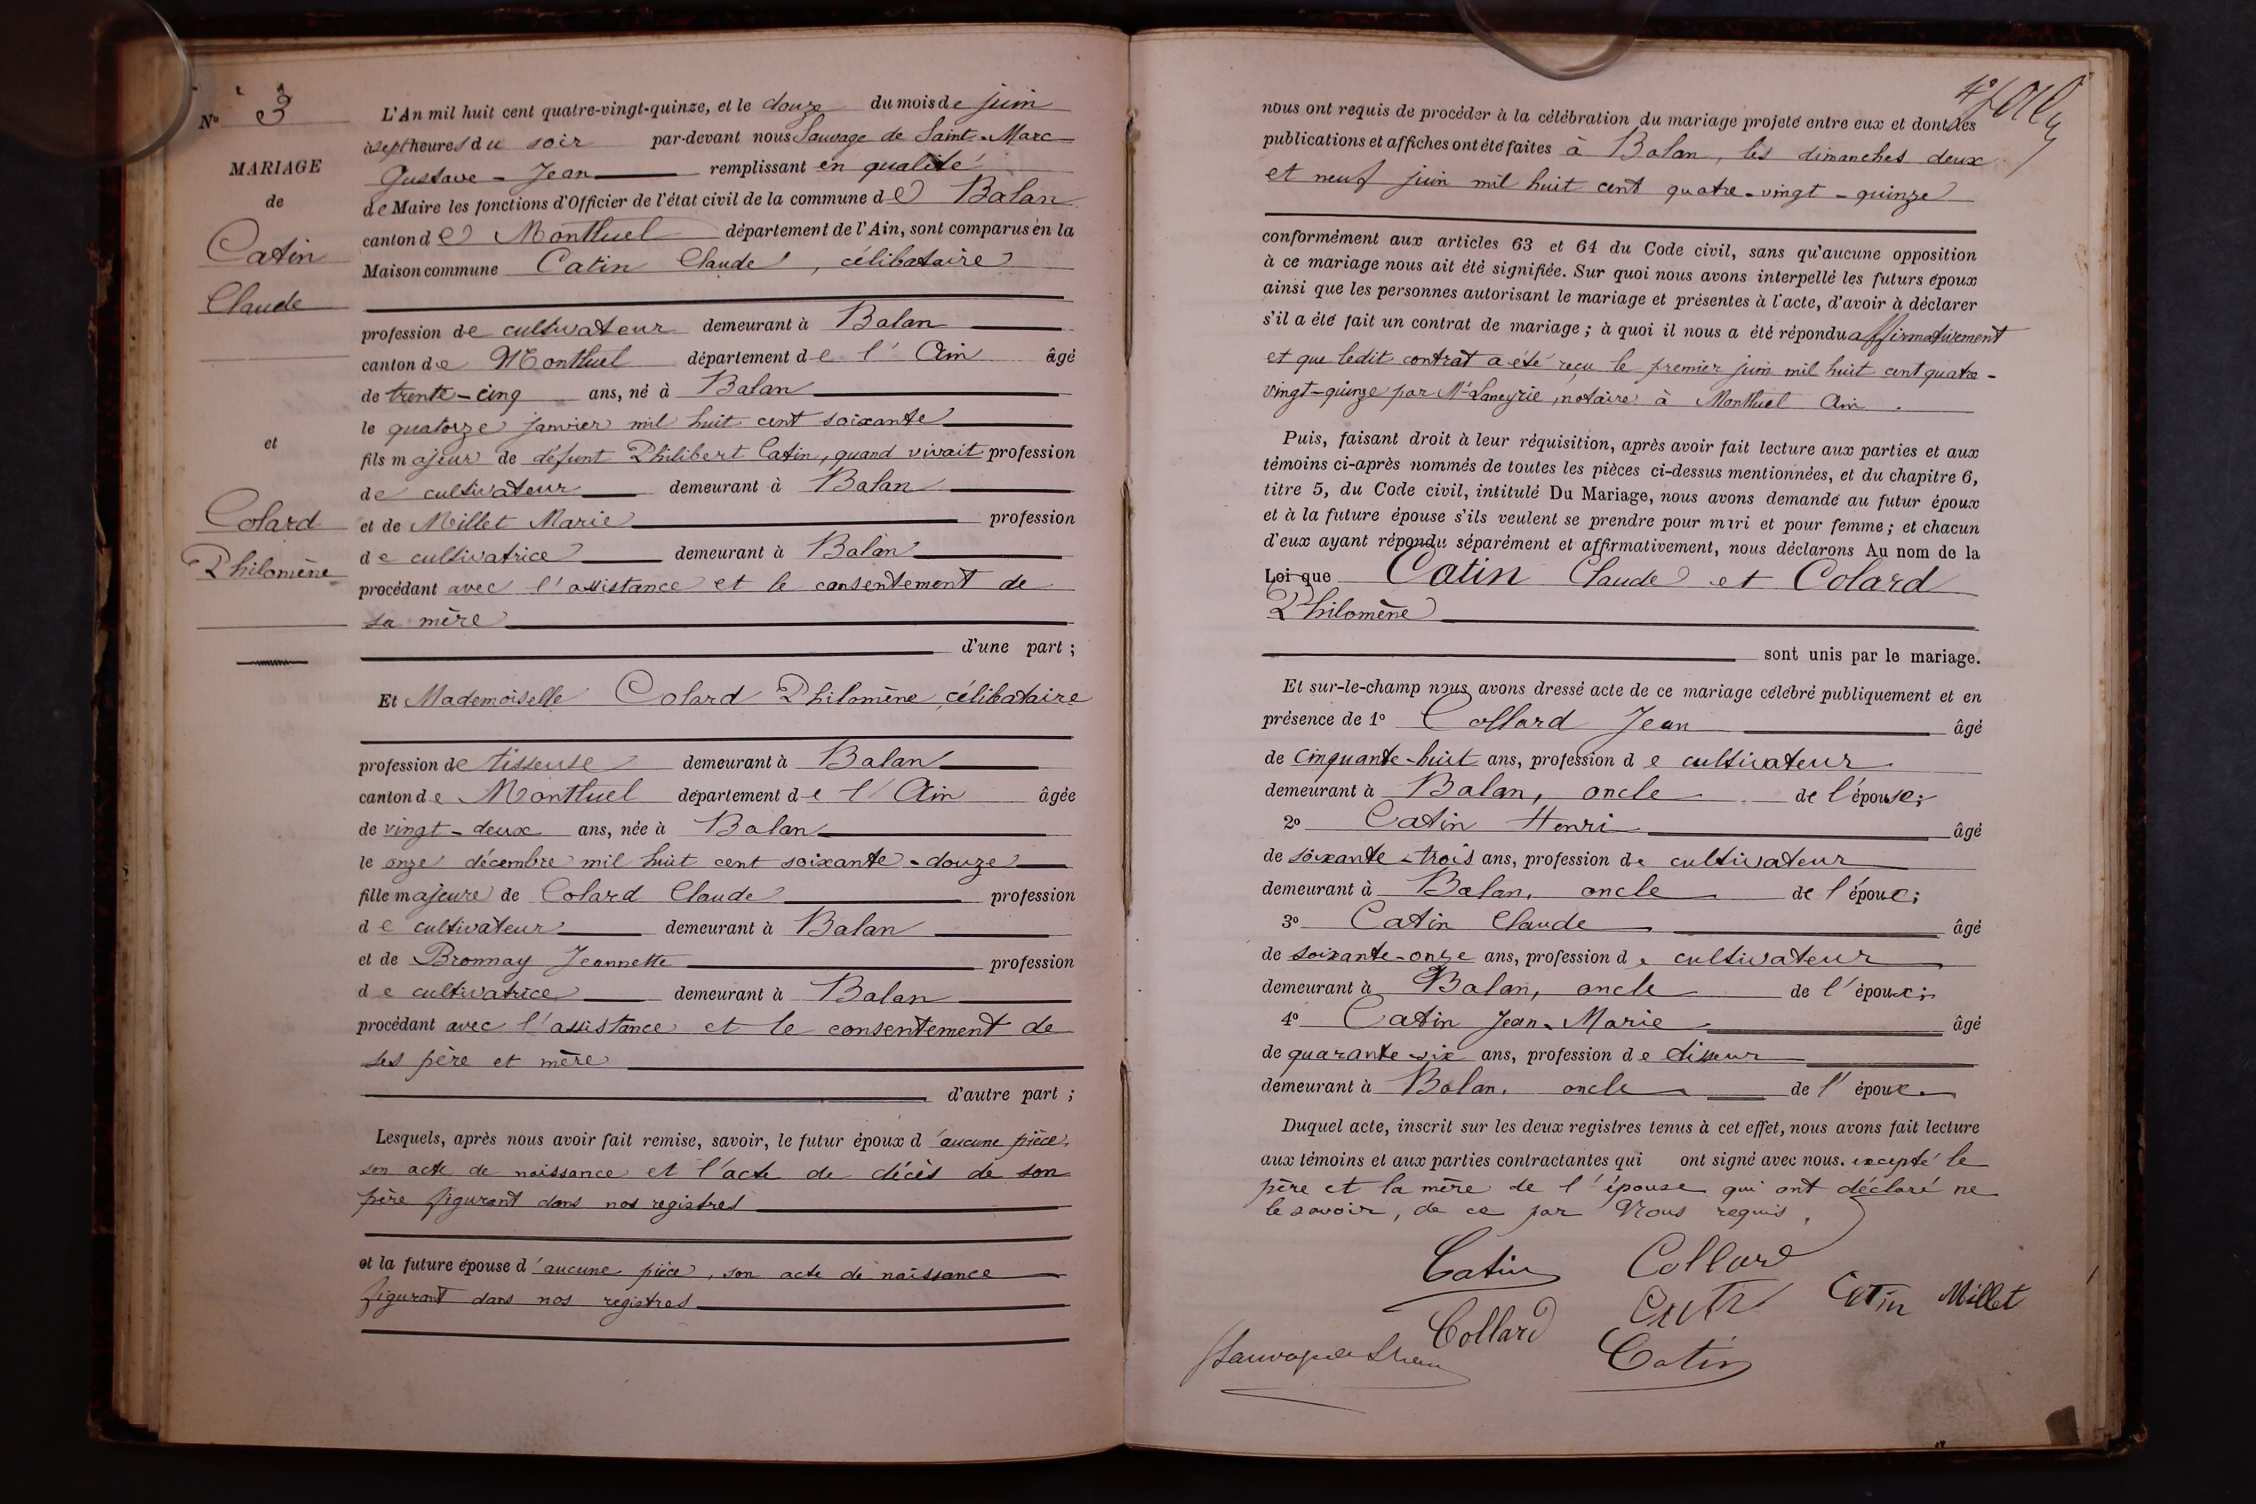 Nº 3
MARIAGE
de
Catin
Claude
et
Colard
Philomène
L'An mil huit cent quatre-vingt-quinze, et le douze du mois de juin
à sept heures du soir par-devant nous Sauvage de Saint-Marc
Gustave - Jean remplissant en qualité
de Maire les fonctions d'Officier de l'état civil de la commune de Balan
canton de Montluel département de l'Ain, sont comparus en la
Maison commune Catin Claude, célibataire
profession de cultivateur demeurant à Balan
canton de Montluel département de l'Ain âgé
de trente-cinq ans, né à Balan
le quatorze janvier mil huit cent soixante
fils majeur de défunt Philibert Catin, quand vivait profession
de cultivateur demeurant à Balan
et de Millet Marie profession
de cultivatrice demeurant à Balan
procédant avec l'assistance et le consentement de
sa mère
d'une part ;
Et Mademoiselle Colard Philomène, célibataire
profession de tisseuse demeurant à Balan
canton de Montluel département de l'Ain âgée
de vingt-deux ans, née à Balan
le onze décembre mil huit cent soixante-douze
fille majeure de Colard Claude profession
de cultivateur demeurant à Balan
et de Bronnay Jeannette profession
de cultivatrice demeurant à Balan
procédant avec l'assistance et le consentement de
ses père et mère
d'autre part ;
Lesquels, après nous avoir fait remise, savoir, le futur époux d'aucune pièce,
son acte de naissance et l'acte de décès de son
père figurant dans nos registres
et la future épouse d'aucune pièce, son acte de naissance
figurant dans nos registres
nous ont requis de procéder à la célébration du mariage projeté entre eux et dont les
publications et affiches ont été faites à Balan, les dimanches deux
et neuf juin mil huit cent quatre-vingt-quinze
conformément aux articles 63 et 64 du Code civil, sans qu'aucune opposition
à ce mariage nous ait été signifiée. Sur quoi nous avons interpellé les futurs époux
ainsi que les personnes autorisant le mariage et présentes à l'acte, d'avoir à déclarer
s'il a été fait un contrat de mariage ; à quoi il nous a été répondu affirmativement
et que ledit contrat a été reçu le premier juin mil huit cent quatre-
vingt-quinze par Me Laneyrie, notaire à Montluel Ain.
Puis, faisant droit à leur réquisition, après avoir fait lecture aux parties et aux
témoins ci-après nommés de toutes les pièces ci-dessus mentionnées, et du chapitre 6,
titre 5, du Code civil, intitulé Du Mariage, nous avons demandé au futur époux
et à la future épouse s'ils veulent se prendre pour mari et pour femme ; et chacun
d'eux ayant répondu séparément et affirmativement, nous déclarons Au nom de la
Loi que Catin Claude et Colard
Philomène
sont unis par le mariage.
Et sur-le-champ nous avons dressé acte de ce mariage célébré publiquement et en
présence de 1º Collard Jean âgé
de cinquante-huit ans, profession de cultivateur
demeurant à Balan, oncle de l'épouse;
2º Catin Henri âgé
de soixante-trois ans, profession de cultivateur
demeurant à Balan, oncle de l'époux;
3º Catin Claude âgé
de soixante-onze ans, profession de cultivateur
demeurant à Balan, oncle de l'époux;
4º Catin Jean-Marie âgé
de quarante-six ans, profession de tisseur
demeurant à Balan, oncle de l'époux.
Duquel acte, inscrit sur les deux registres tenus à cet effet, nous avons fait lecture
aux témoins et aux parties contractantes qui ont signé avec nous. excepté le
père et la mère de l'épouse qui ont déclaré ne
le savoir, de ce par Nous requis.
Catin Collard
Catin Millet
Collard
Catin